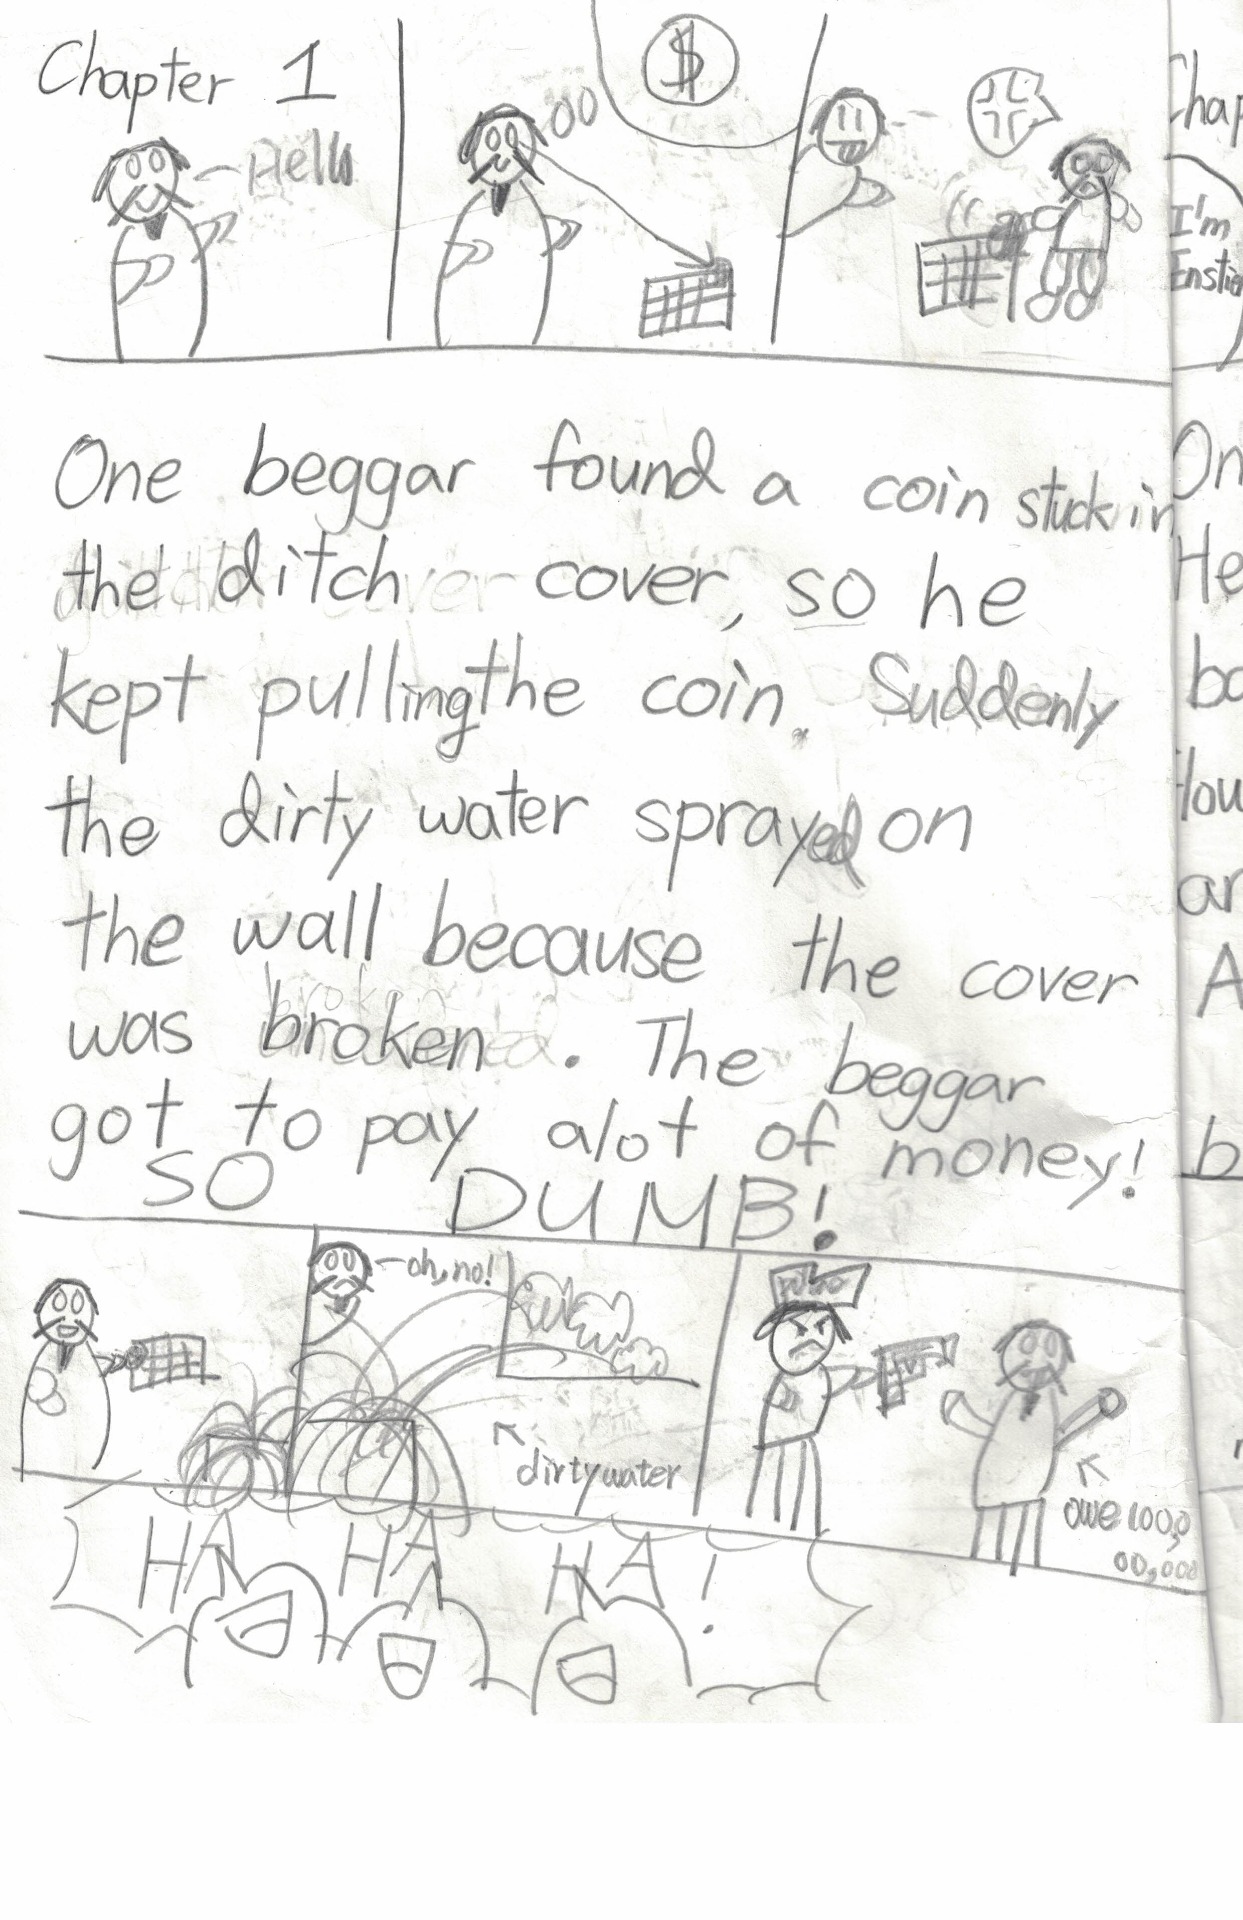 Chapter 1
Hello
$
One beggar found a coin stuck in
the ditch cover, so he
kept pulling the coin. Suddenly
the dirty water sprayed on
the wall because the cover
was broken. The beggar
got to pay alot of money!
SO DUMB!
oh, no!
dirty water
owe 100,0
00,000
HA HA HA!
Chap
I'm
On
He
bo
ar
A
b